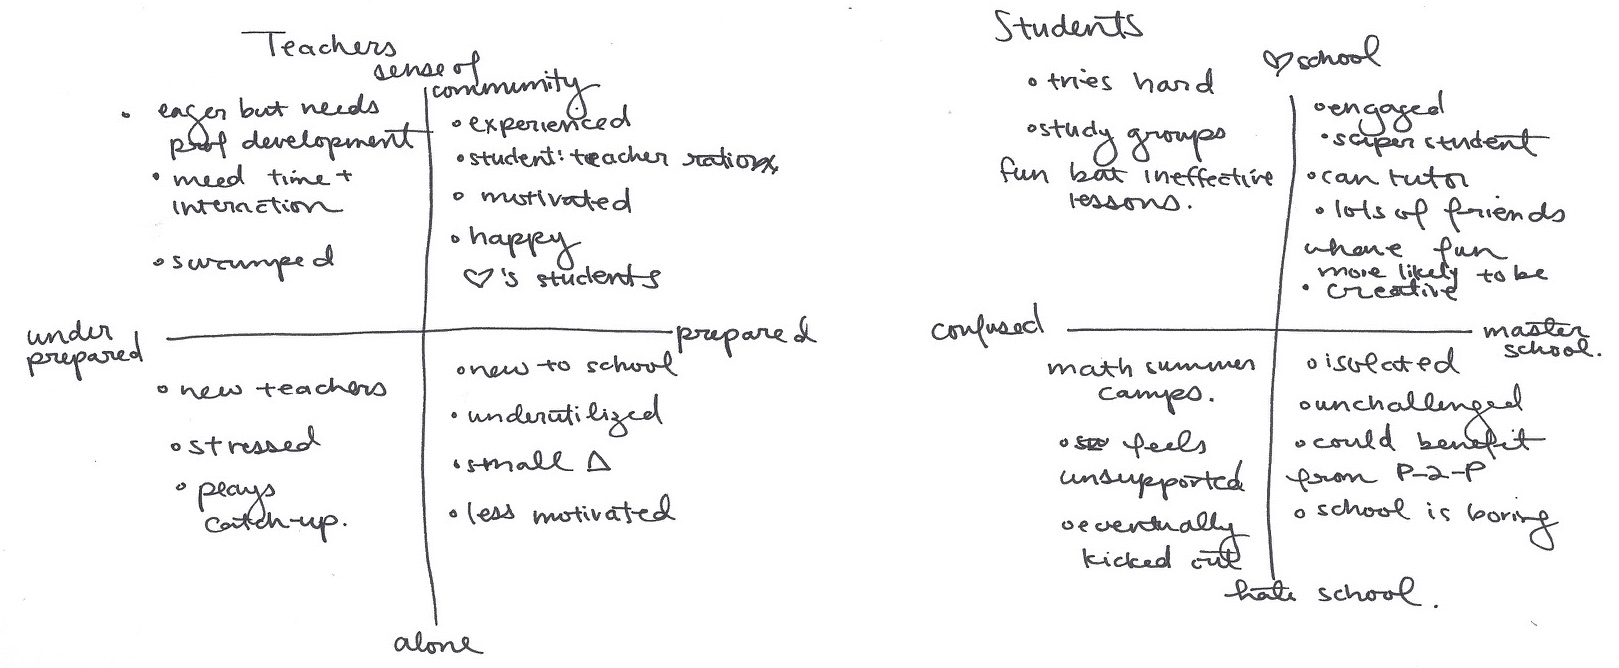 Teachers
sense of
community
• eager but needs
prof development
• need time +
interaction
• swamped
• experienced
• student:teacher
• motivated
• happy
♡'s students
under
prepared
prepared
• new teachers
• stressed
• plays
catch-up.
• new to school
• underutilized
• small Δ
• less motivated
alone
Students
♡ school
• tries hard
• study groups
fun but ineffective
lessons.
• engaged
• super student
• can tutor
• lots of friends
have fun
more likely to be
• creative
confused
master
school.
math summer
camps.
• feels
unsupported
• eventually
kicked out
• isolated
• unchallenged
• could benefit
from P-2-P
• school is boring
hate school.